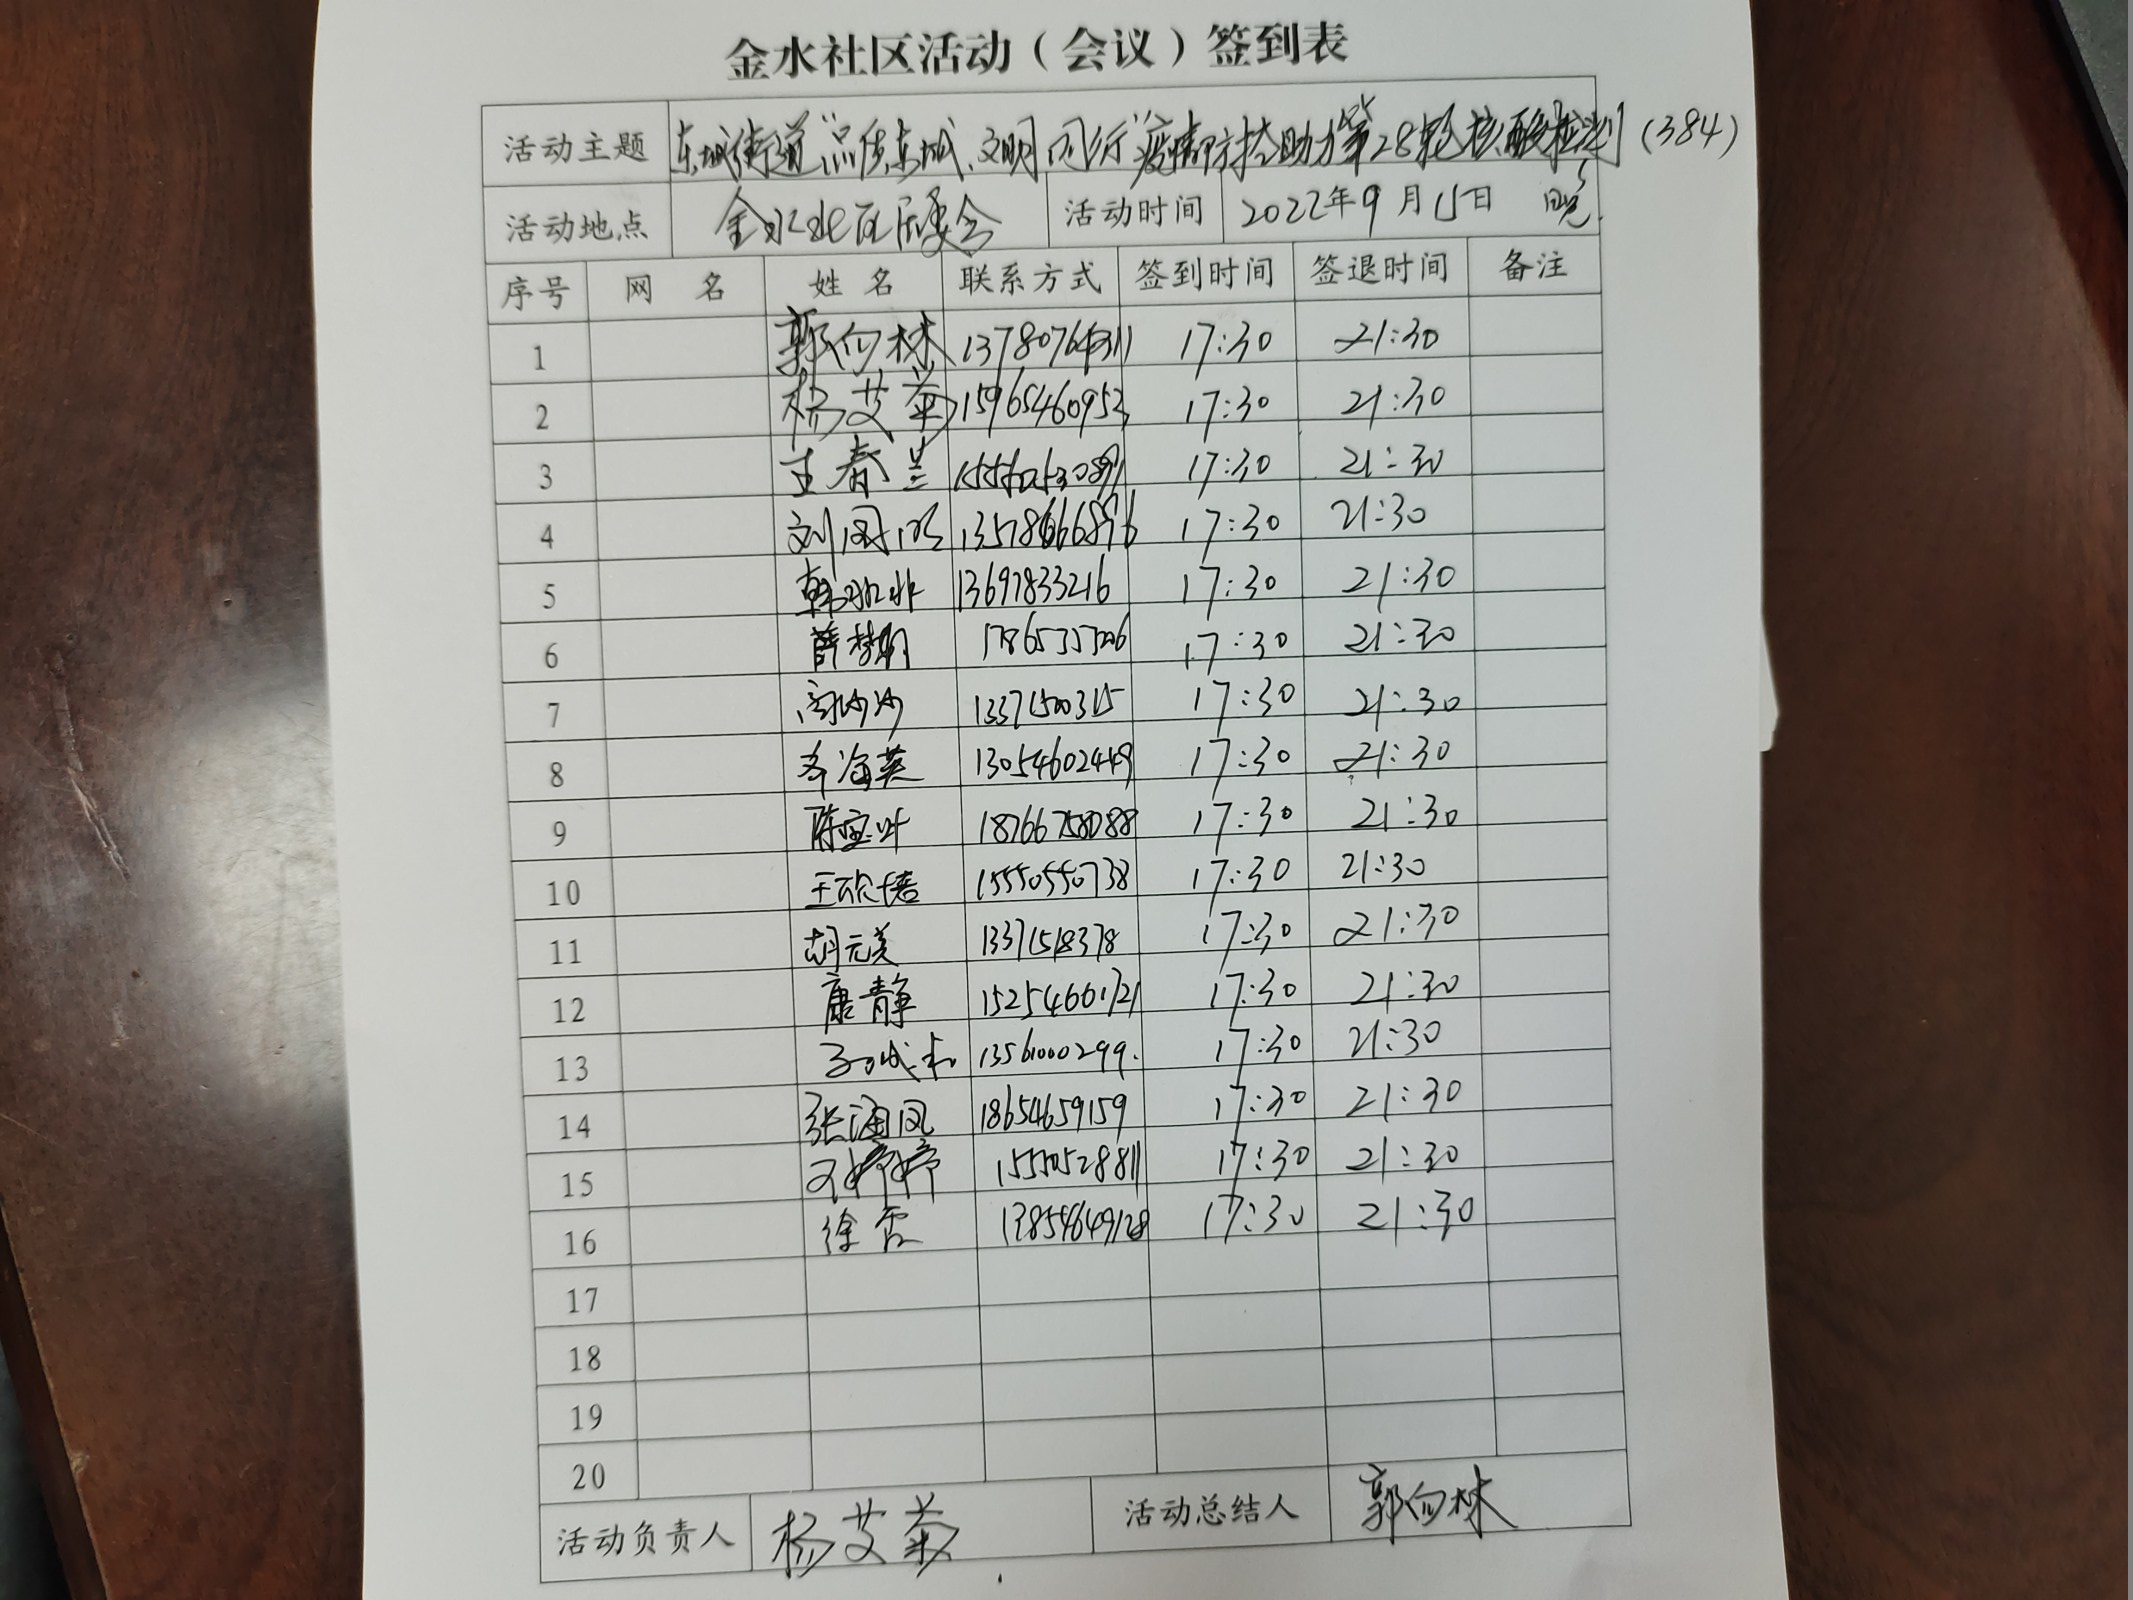 金水社区活动（会议）签到表
活动主题 东城街道“品质东城、文明同行”疫情防控助力第28轮核酸检测（384）
活动地点 金水社区居委会 活动时间 2022年9月15日 晚
序号 网 名 姓 名 联系方式 签到时间 签退时间 备注
1 郭向林 17:30 21:30
2 杨艾菊 15965460953 17:30 21:30
3 王春兰 17:30 21:30
4 17:30 21:30
5 13697833216 17:30 21:30
6 17:30 21:30
7 13371500315 17:30 21:30
8 海英 13054602449 17:30 21:30
9 陈宝叶 18766758088 17:30 21:30
10 15550550738 17:30 21:30
11 胡元美 13371518378 17:30 21:30
12 康静 15254660121 17:30 21:30
13 13561000299. 17:30 21:30
14 张海凤 18654659159 17:30 21:30
15 婷婷 15550528811 17:30 21:30
16 徐霞 13854649128 17:30 21:30
17
18
19
20
活动负责人 杨艾菊 活动总结人 郭向林